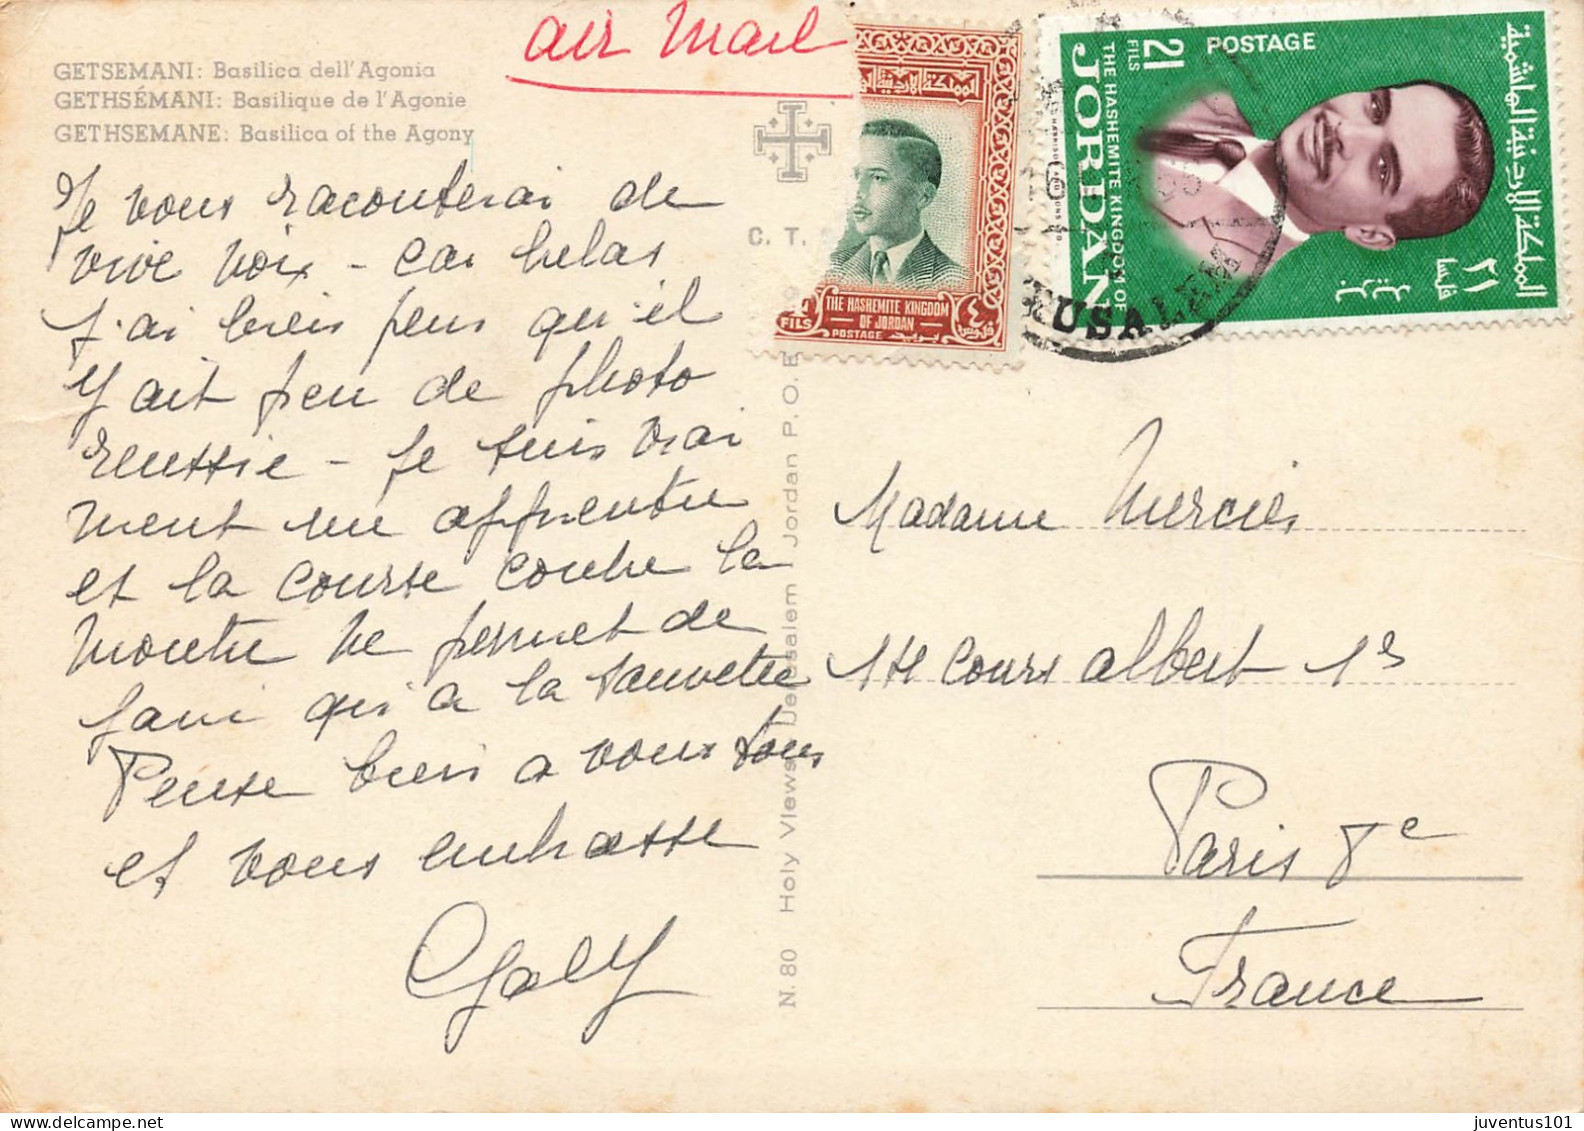 air mail
GETSEMANI: Basilica dell'Agonia
GETHSÉMANI: Basilique de l'Agonie
GETHSEMANE: Basilica of the Agony
Je vous raconterai de
vive voix - car helas
j'ai bien peur qu'il
y ait peu de photo
reussie - Je suis vrai
ment un apprentie
et la course contre la
montre ne permet de
faire qu'à la sauvette
Pense bien a vous tous
et vous embrasse
Galy
C. T.
N. 80 Holy Views Jerusalem Jordan P.O.B
المملكة الأردنية الهاشمية
4
FILS
THE HASHEMITE KINGDOM
OF JORDAN
POSTAGE
٤
فلوس
بريد
POSTAGE
21
FILS
THE HASHEMITE KINGDOM OF
JORDAN
HARRISON AND SONS LTD
المملكة الاردنية الهاشمية
٢١
فلسا
بريد
JERUSALEM
Madame Mercier
114 Cours Albert 1er
Paris 8e
France
juventus101